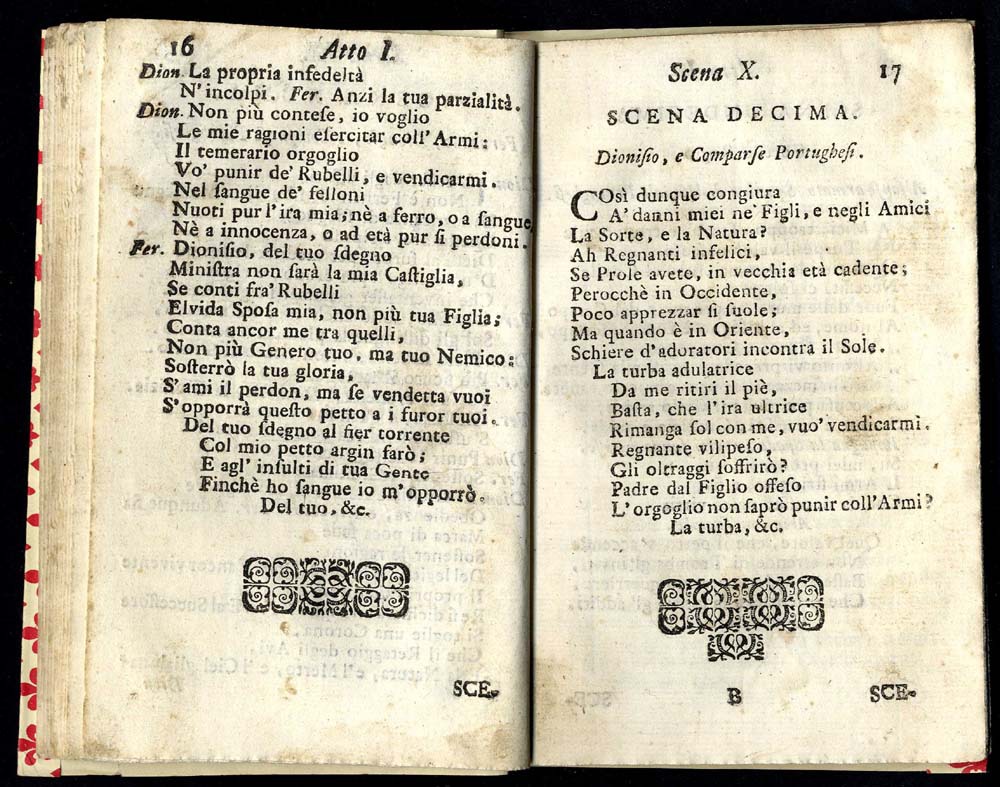 16 Atto I.
Dion. La propria infedeltà
N'incolpi. Fer. Anzi la tua parzialità.
Dion. Non più contese, io voglio
Le mie ragioni esercitar coll'Armi:
Il temerario orgoglio
Vo' punir de' Rubelli, e vendicarmi.
Nel sangue de' felloni
Nuoti pur l'ira mia; nè a ferro, o a sangue
Nè a innocenza, o ad età pur si perdoni.
Fer. Dionisio, del tuo sdegno
Ministra non sarà la mia Castiglia,
Se conti fra' Rubelli
Elvida Sposa mia, non più tua Figlia;
Conta ancor me tra quelli,
Non più Genero tuo, ma tuo Nemico:
Sosterrò la tua gloria,
S'ami il perdon, ma se vendetta vuoi
S'opporrà questo petto a i furor tuoi.
Del tuo sdegno al fier torrente
Col mio petto argin farò;
E agl' insulti di tua Gente
Finchè ho sangue io m'opporrò.
Del tuo, &c.
SCE-
Scena X. 17
SCENA DECIMA.
Dionisio, e Comparse Portughesi.
COsì dunque congiura
A' danni miei ne' Figli, e negli Amici
La Sorte, e la Natura?
Ah Regnanti infelici,
Se Prole avete, in vecchia età cadente;
Perocchè in Occidente,
Poco apprezzar si suole;
Ma quando è in Oriente,
Schiere d'adoratori incontra il Sole.
La turba adulatrice
Da me ritiri il piè,
Basta, che l'ira ultrice
Rimanga sol con me, vuo' vendicarmi.
Regnante vilipeso,
Gli oltraggi soffrirò?
Padre dal Figlio offeso
L'orgoglio non saprò punir coll'Armi?
La turba, &c.
B SCE-